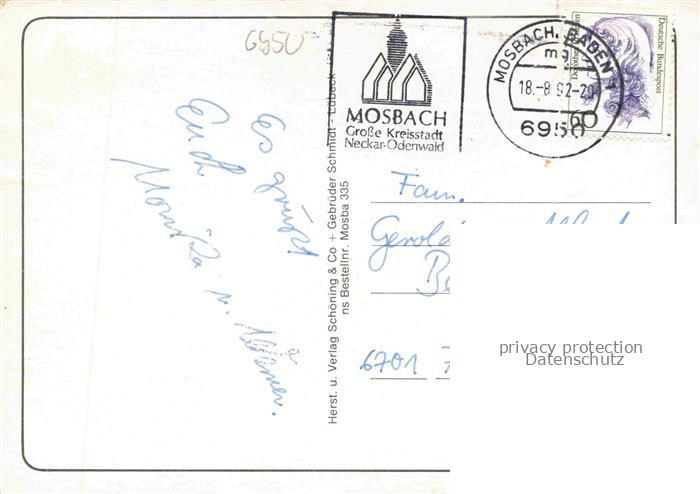 6950
MOSBACH
Große Kreisstadt
Neckar-Odenwald
MOSBACH (BADEN) 1
18.-8.92-20
6950
Deutsche Bundespost
60
Es grüßt
Euch
Monika
Herst. u. Verlag Schöning & Co + Gebrüder Schmidt - Lübeck
ns Bestellnr. Mosba 335
Fam.
Gerold
6701
privacy protection
Datenschutz